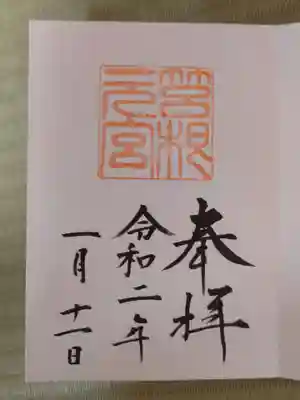 箱根
元宮
奉拝
令和二年
一月十一日